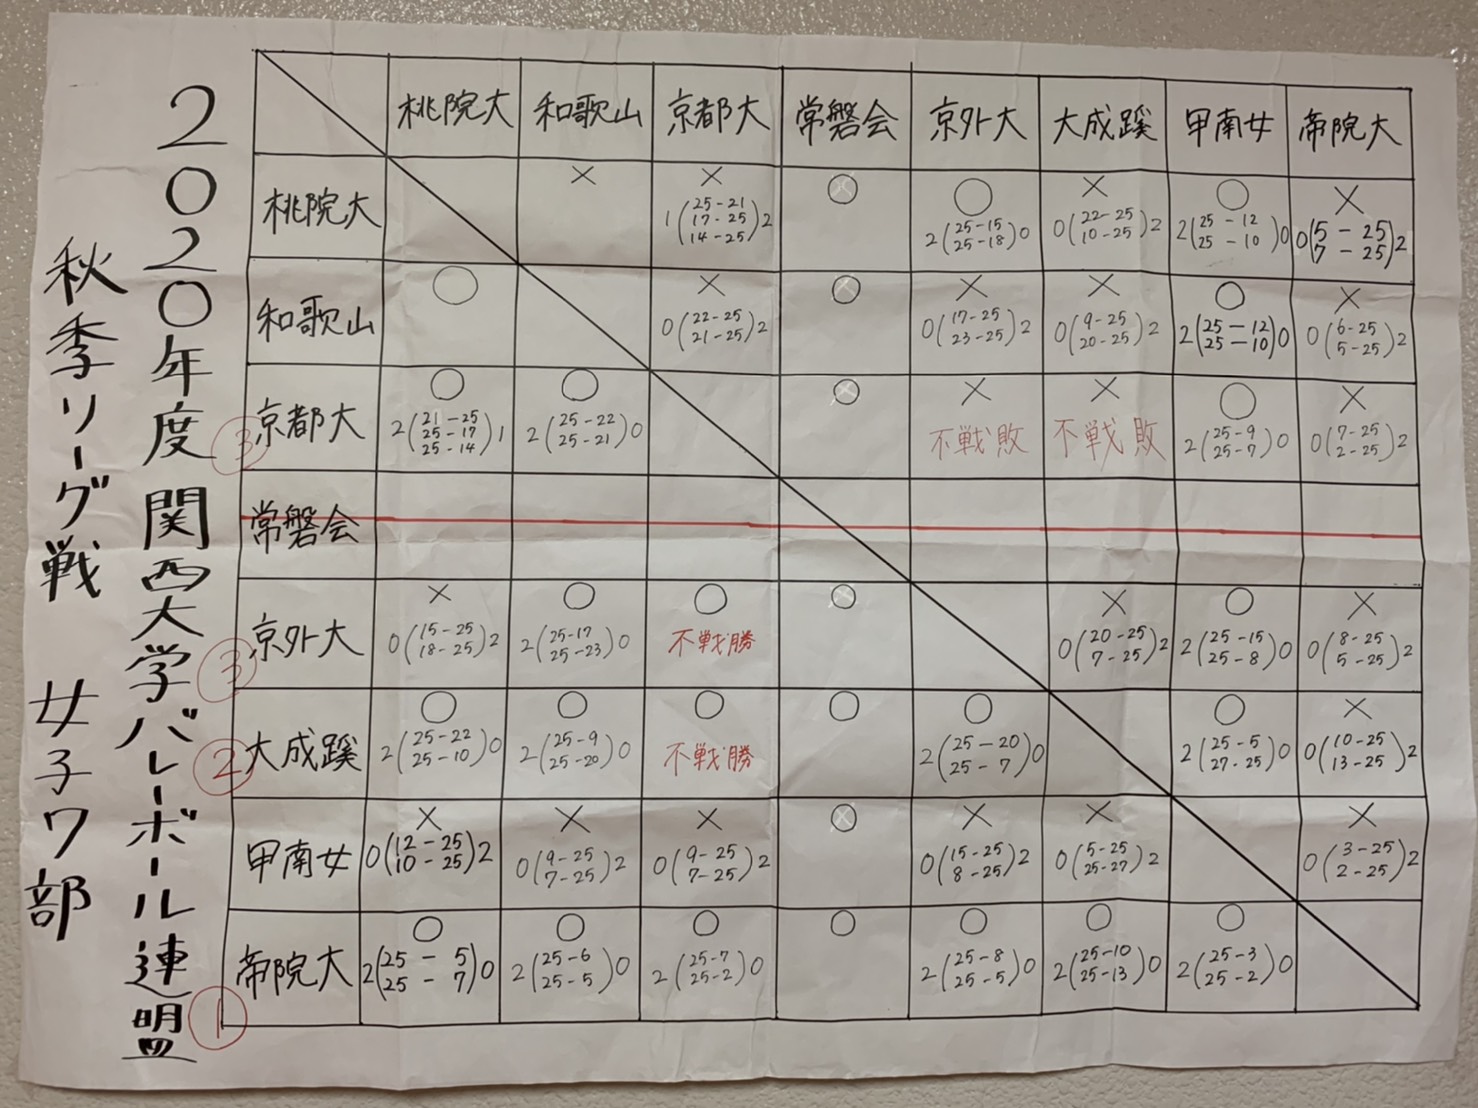 2020年度 関西大学バレーボール連盟
秋季リーグ戦 女子7部
桃院大 和歌山 京都大 常磐会 京外大 大成蹊 甲南女 帝院大
桃院大 × × 1(25-21 17-25 14-25)2 ○ ○ 2(25-15 25-18)0 × 0(22-25 10-25)2 ○ 2(25-12 25-10)0 × 0(5-25 7-25)2
和歌山 ○ × 0(22-25 21-25)2 ○ × 0(17-25 23-25)2 × 0(9-25 20-25)2 ○ 2(25-12 25-10)0 × 0(6-25 5-25)2
③ 京都大 ○ 2(21-25 25-17 25-14)1 ○ 2(25-22 25-21)0 ○ × 不戦敗 × 不戦敗 ○ 2(25-9 25-7)0 × 0(7-25 2-25)2
常磐会
③ 京外大 × 0(15-25 18-25)2 ○ 2(25-17 25-23)0 ○ 不戦勝 ○ × 0(20-25 7-25)2 ○ 2(25-15 25-8)0 × 0(8-25 5-25)2
② 大成蹊 ○ 2(25-22 25-10)0 ○ 2(25-9 25-20)0 ○ 不戦勝 ○ ○ 2(25-20 25-7)0 ○ 2(25-5 27-25)0 × 0(10-25 13-25)2
甲南女 × 0(12-25 10-25)2 × 0(9-25 7-25)2 × 0(9-25 7-25)2 ○ × 0(15-25 8-25)2 × 0(5-25 25-27)2 × 0(3-25 2-25)2
① 帝院大 ○ 2(25-5 25-7)0 ○ 2(25-6 25-5)0 ○ 2(25-7 25-2)0 ○ ○ 2(25-8 25-5)0 ○ 2(25-10 25-13)0 ○ 2(25-3 25-2)0